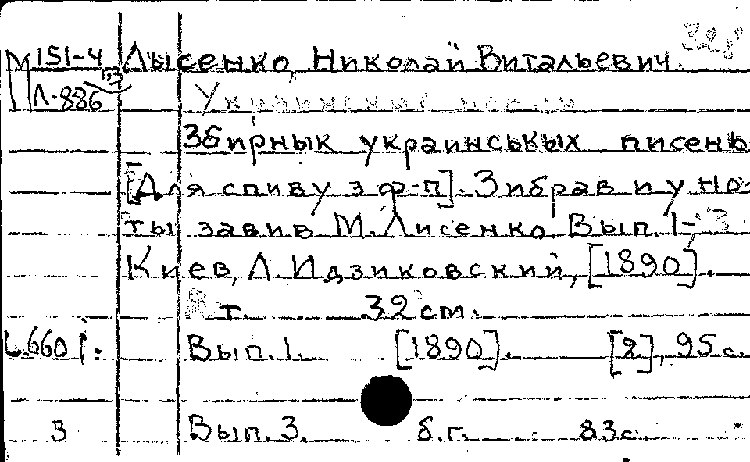 М151-4 Лысенко, Николай Витальевич.
Л-886 Украинские
Збирнык украинськых писень
[Для спиву з ф-п]. Зибрав и у но-
ты завив М. Лисенко Вып. 1-3
Киев, Л. Идзиковский, [1890].
т. 32 см.
Вып. 1. [1890]. [2], 95 с.
3 Вып. 3. б.г. 83 с.